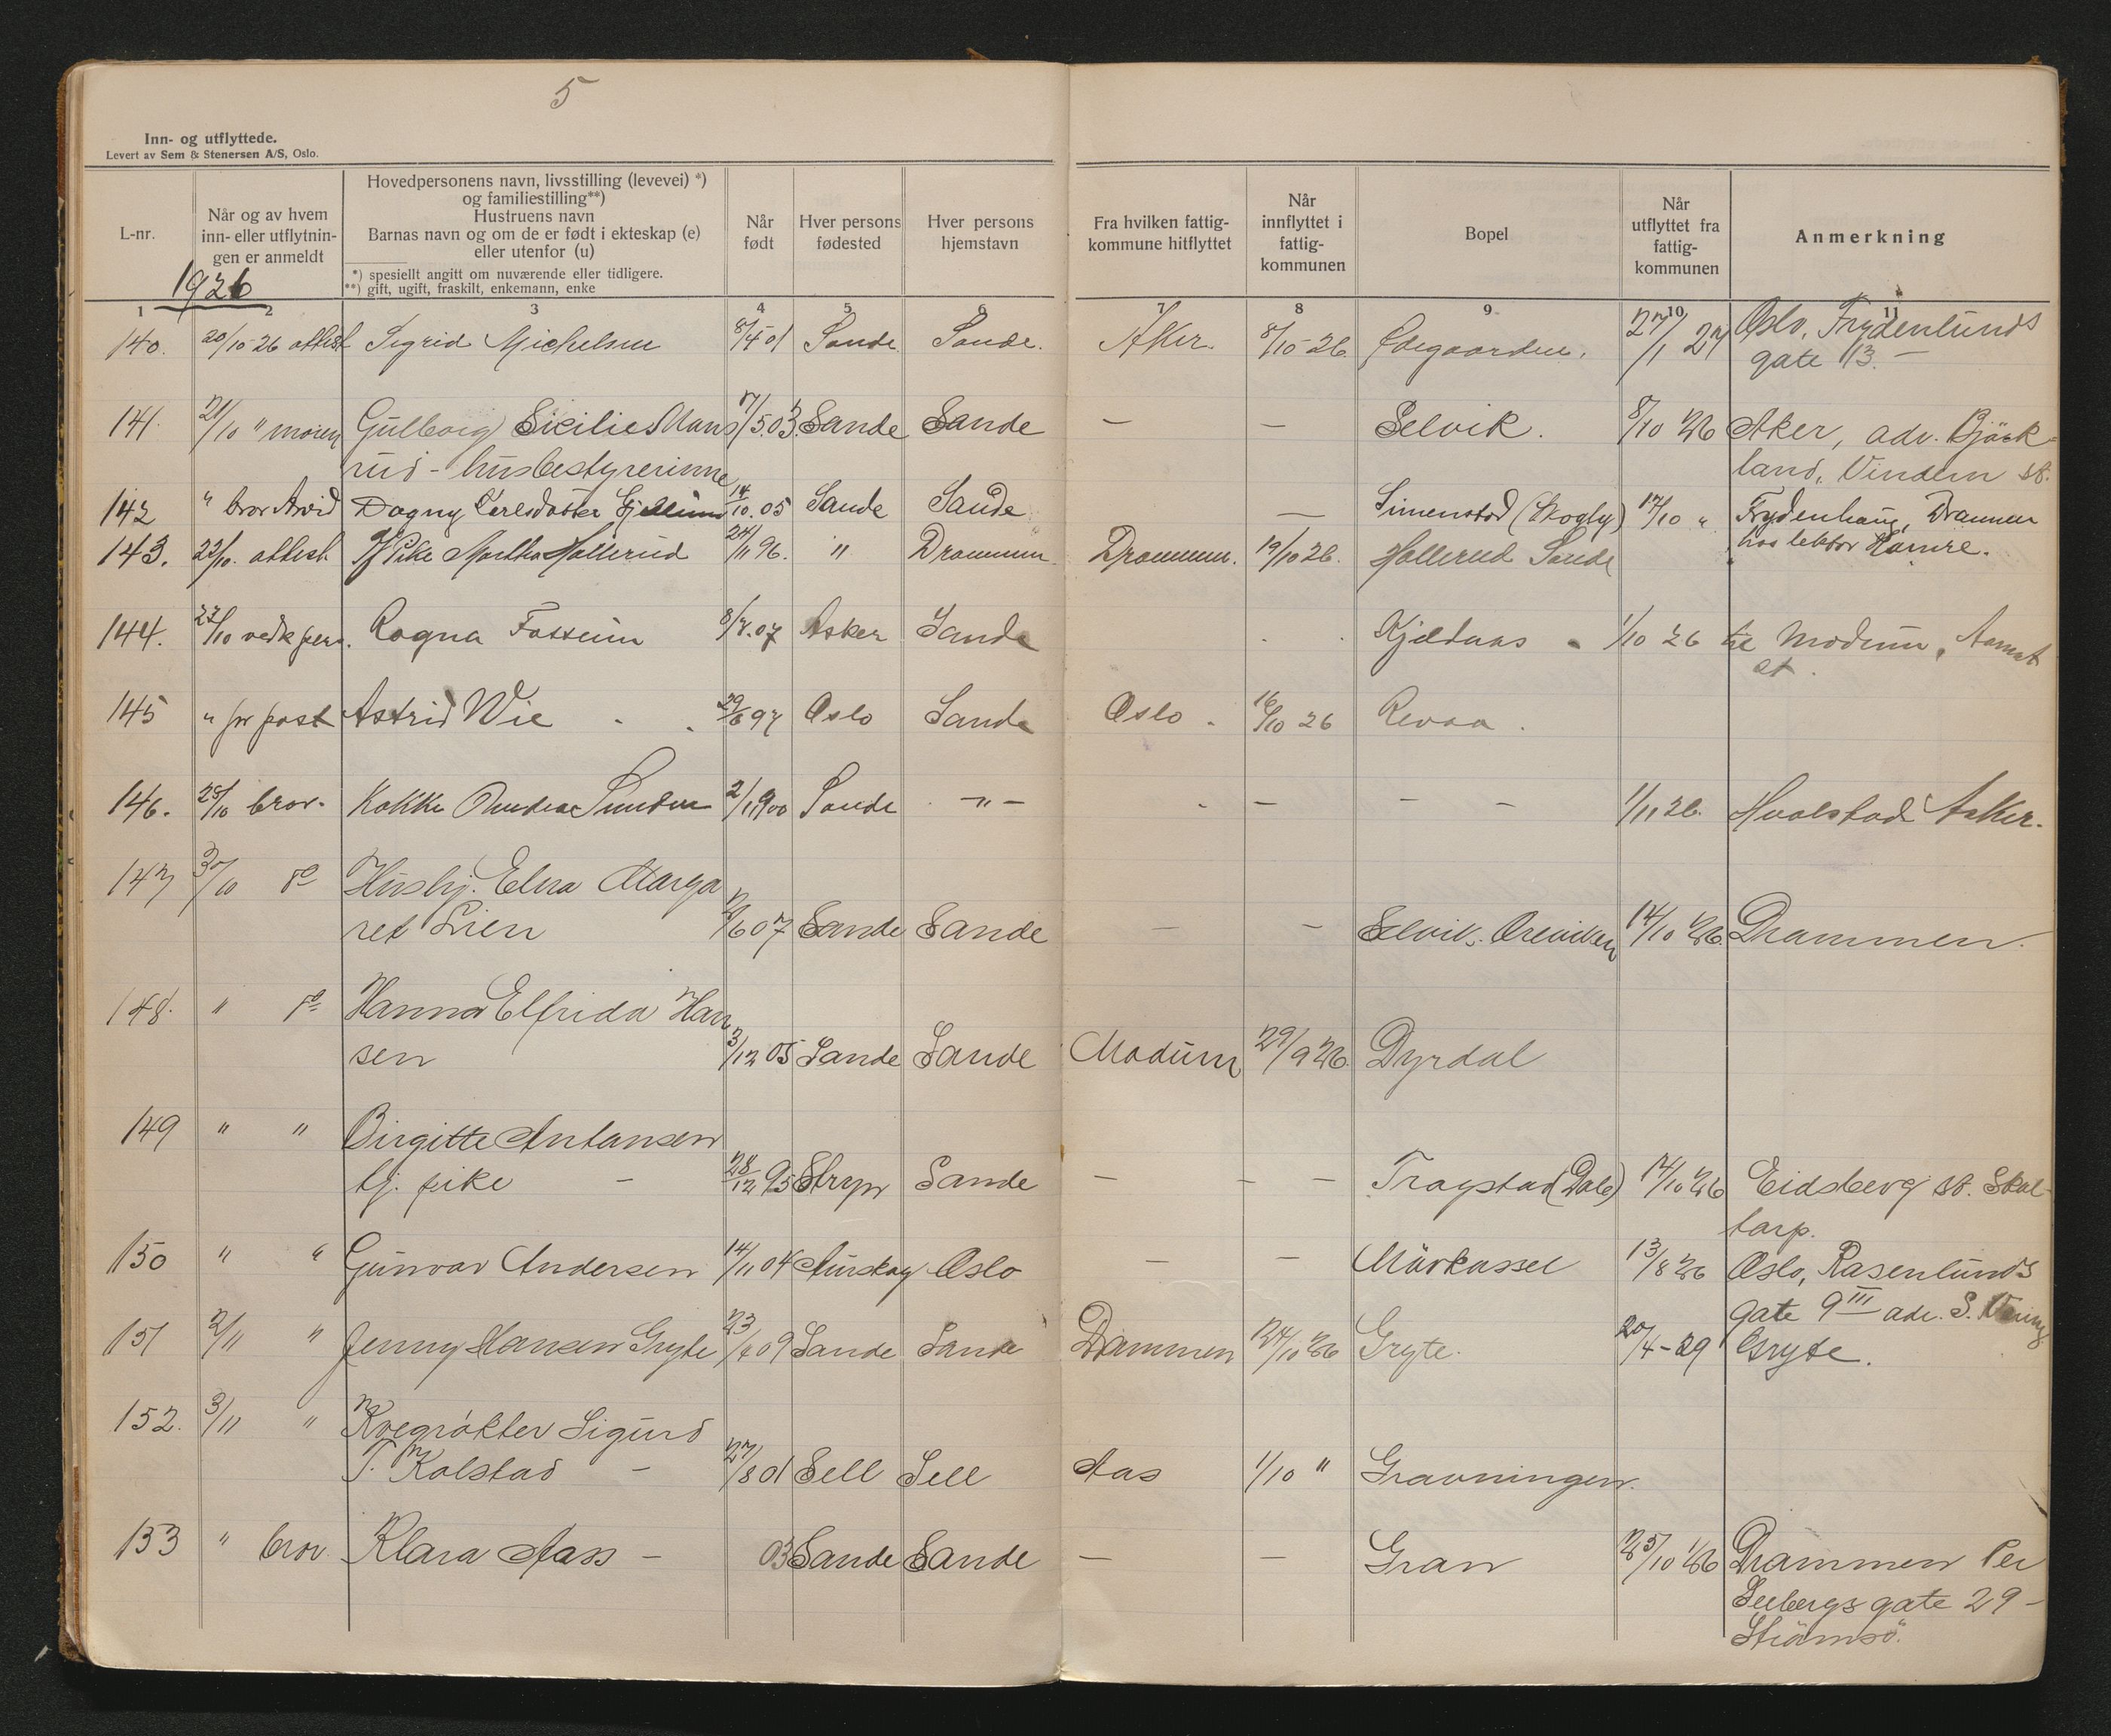 5
Inn- og utflyttede.
Levert av Sem & Stenersen A/S, Oslo.
L-nr.
Når og av hvem
inn- eller utflytnin-
gen er anmeldt
Hovedpersonens navn, livsstilling (levevei) *)
og familiestilling**)
Hustruens navn
Barnas navn og om de er født i ekteskap (e)
eller utenfor (u)
*) spesiellt angitt om nuværende eller tidligere.
**) gift, ugift, fraskilt, enkemann, enke
Når
født
Hver persons
fødested
Hver persons
hjemstavn
Fra hvilken fattig-
kommune hitflyttet
Når
innflyttet i
fattig-
kommunen
Bopel
Når
utflyttet fra
fattig-
kommunen
Anmerkning
1926
1 2 3 4 5 6 7 8 9 10 11
140. 20/10-26 attest Sigrid Michelsen 8/4 01 Sande Sande. Aker. 8/10-26 Ødegaarden. 27/1 27 Oslo, Frydenlunds
gate 13. —
141. 21/10 " moren Gulborg Sicilie Mans 7/5.03. Sande Sande — — Selvik. 8/10 26 Aker, adr. Bjørk-
rud - husbestyrerinne land, Vindern st.
142 " bror Arvid Dagny Karlsdatter 14/10.05 Sande Sande — Simenstad (Skogly) 17/10 " Frydenhaug, Drammen
hos lektor Hamre.
143. 22/10. attest Pike Martha Hollerud 24/11 96. " Drammen Drammen. 19/10 26. Hollerud Sande
144. 23/10 vedk pers. Ragna Fossum 8/7.07 Asker Sande Kjeldaas 1/10 26 til Modum, Aamot
st.
145 " pr post Astrid Wie 29/6 97 Oslo Sande Oslo 16/10 26 Revaa.
146. 28/10 bror. Kokke Sunden 2/11 900 Sande - " - - — — — 1/11 26. Hvalstad Asker.
147 30/10 do Hushj. Elna Marga
ret Lien 6 07 Sande Sande — — Selvik. Oreviken 14/10 26 Drammen.
148. " do Hanna Elfrida Han
sen 3/12 05 Sande Sande Modum 29/9 26. Dyrdal
149 " " Birgitte Antonsen
tj. pike — 28/12 95 Stryn Sande — — — Tragstad (Dale) 14/10 26 Eidsberg st. Skal-
torp.
150 " " Gunvor Andersen 14/11 04 Aurskog Oslo — — Mörkassel 13/8 26 Oslo, Rosenlunds
gate 9 III adr. S.
151 2/11 " Jenny Hansen Gryte 23/4 09 Sande Sande Drammen 24/10 26 Gryte. 20/4-29 Gryte.
152. 3/11 " Kvegrøkter Sigurd
T. Kolstad — 27/8 01 Sell Sell Aas 1/10 " Gravningen.
153 " bror. Klara Aass — 03 Sande Sande — — Gran 25/10 26 Drammen Per
Seebergs gate 29 -
Strömsö.